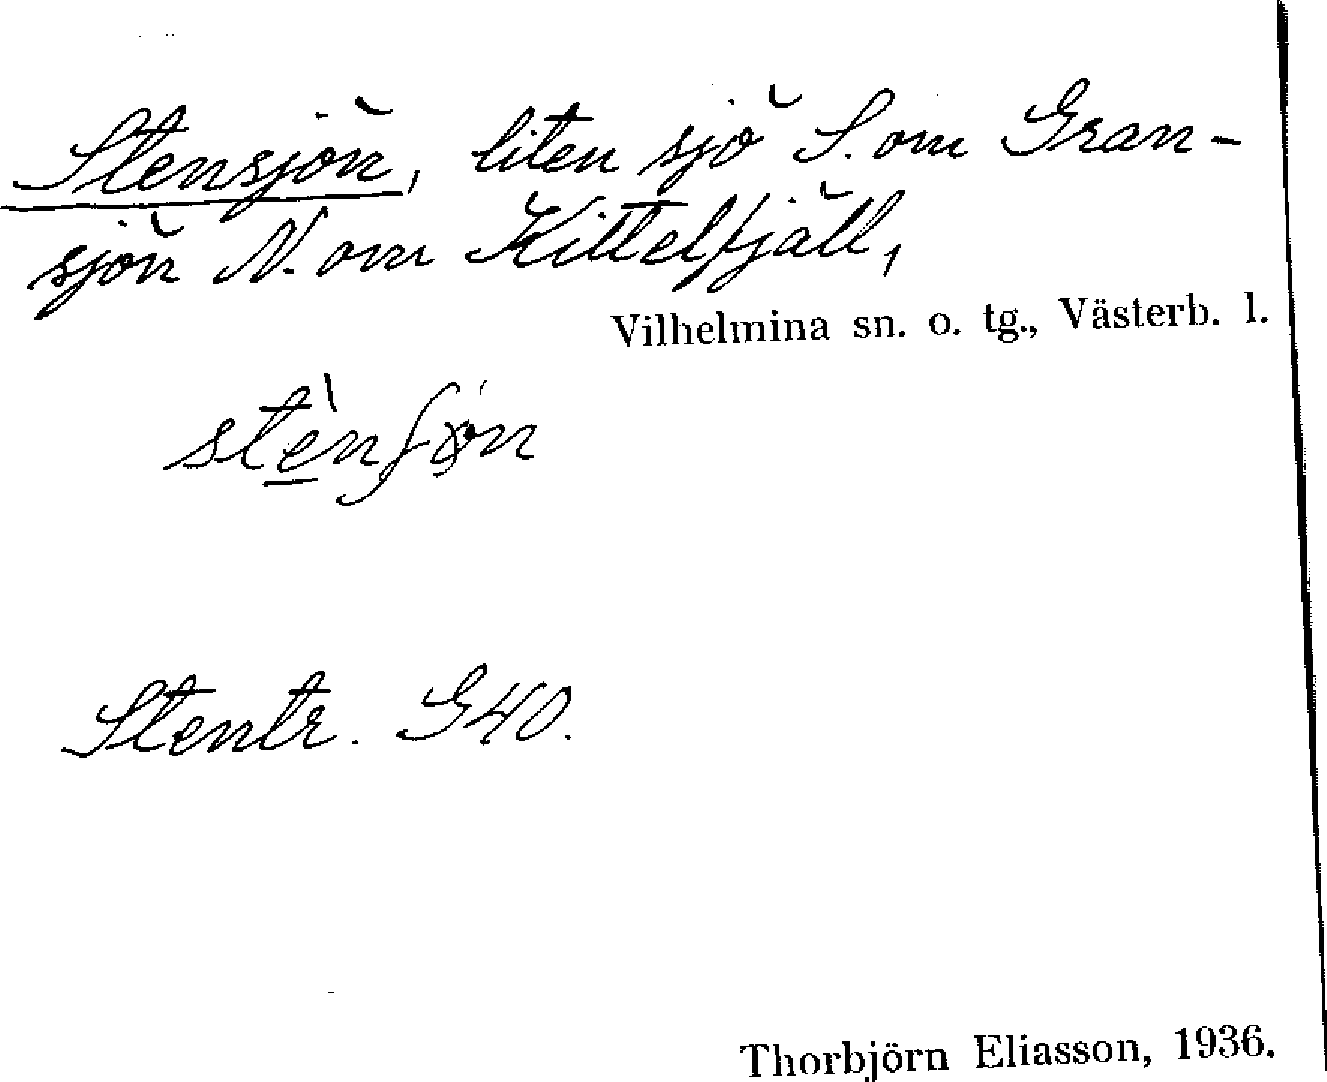 Stensjön, liten sjö S. om Gran-
sjön N. om Kittelfjäll,
Vilhelmina sn. o. tg., Västerb. l.
Stentr. G40.
Thorbjörn Eliasson, 1936.